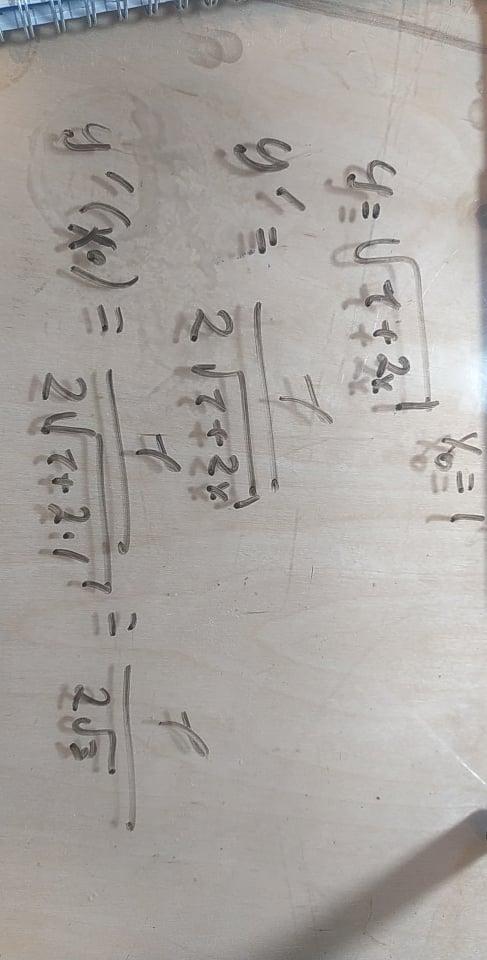 y = √(1 + 2x) x₀ = 1
y' = 1 / (2√(1 + 2x))
y'(x₀) = 1 / (2√(1 + 2·1)) = 1 / (2√3)